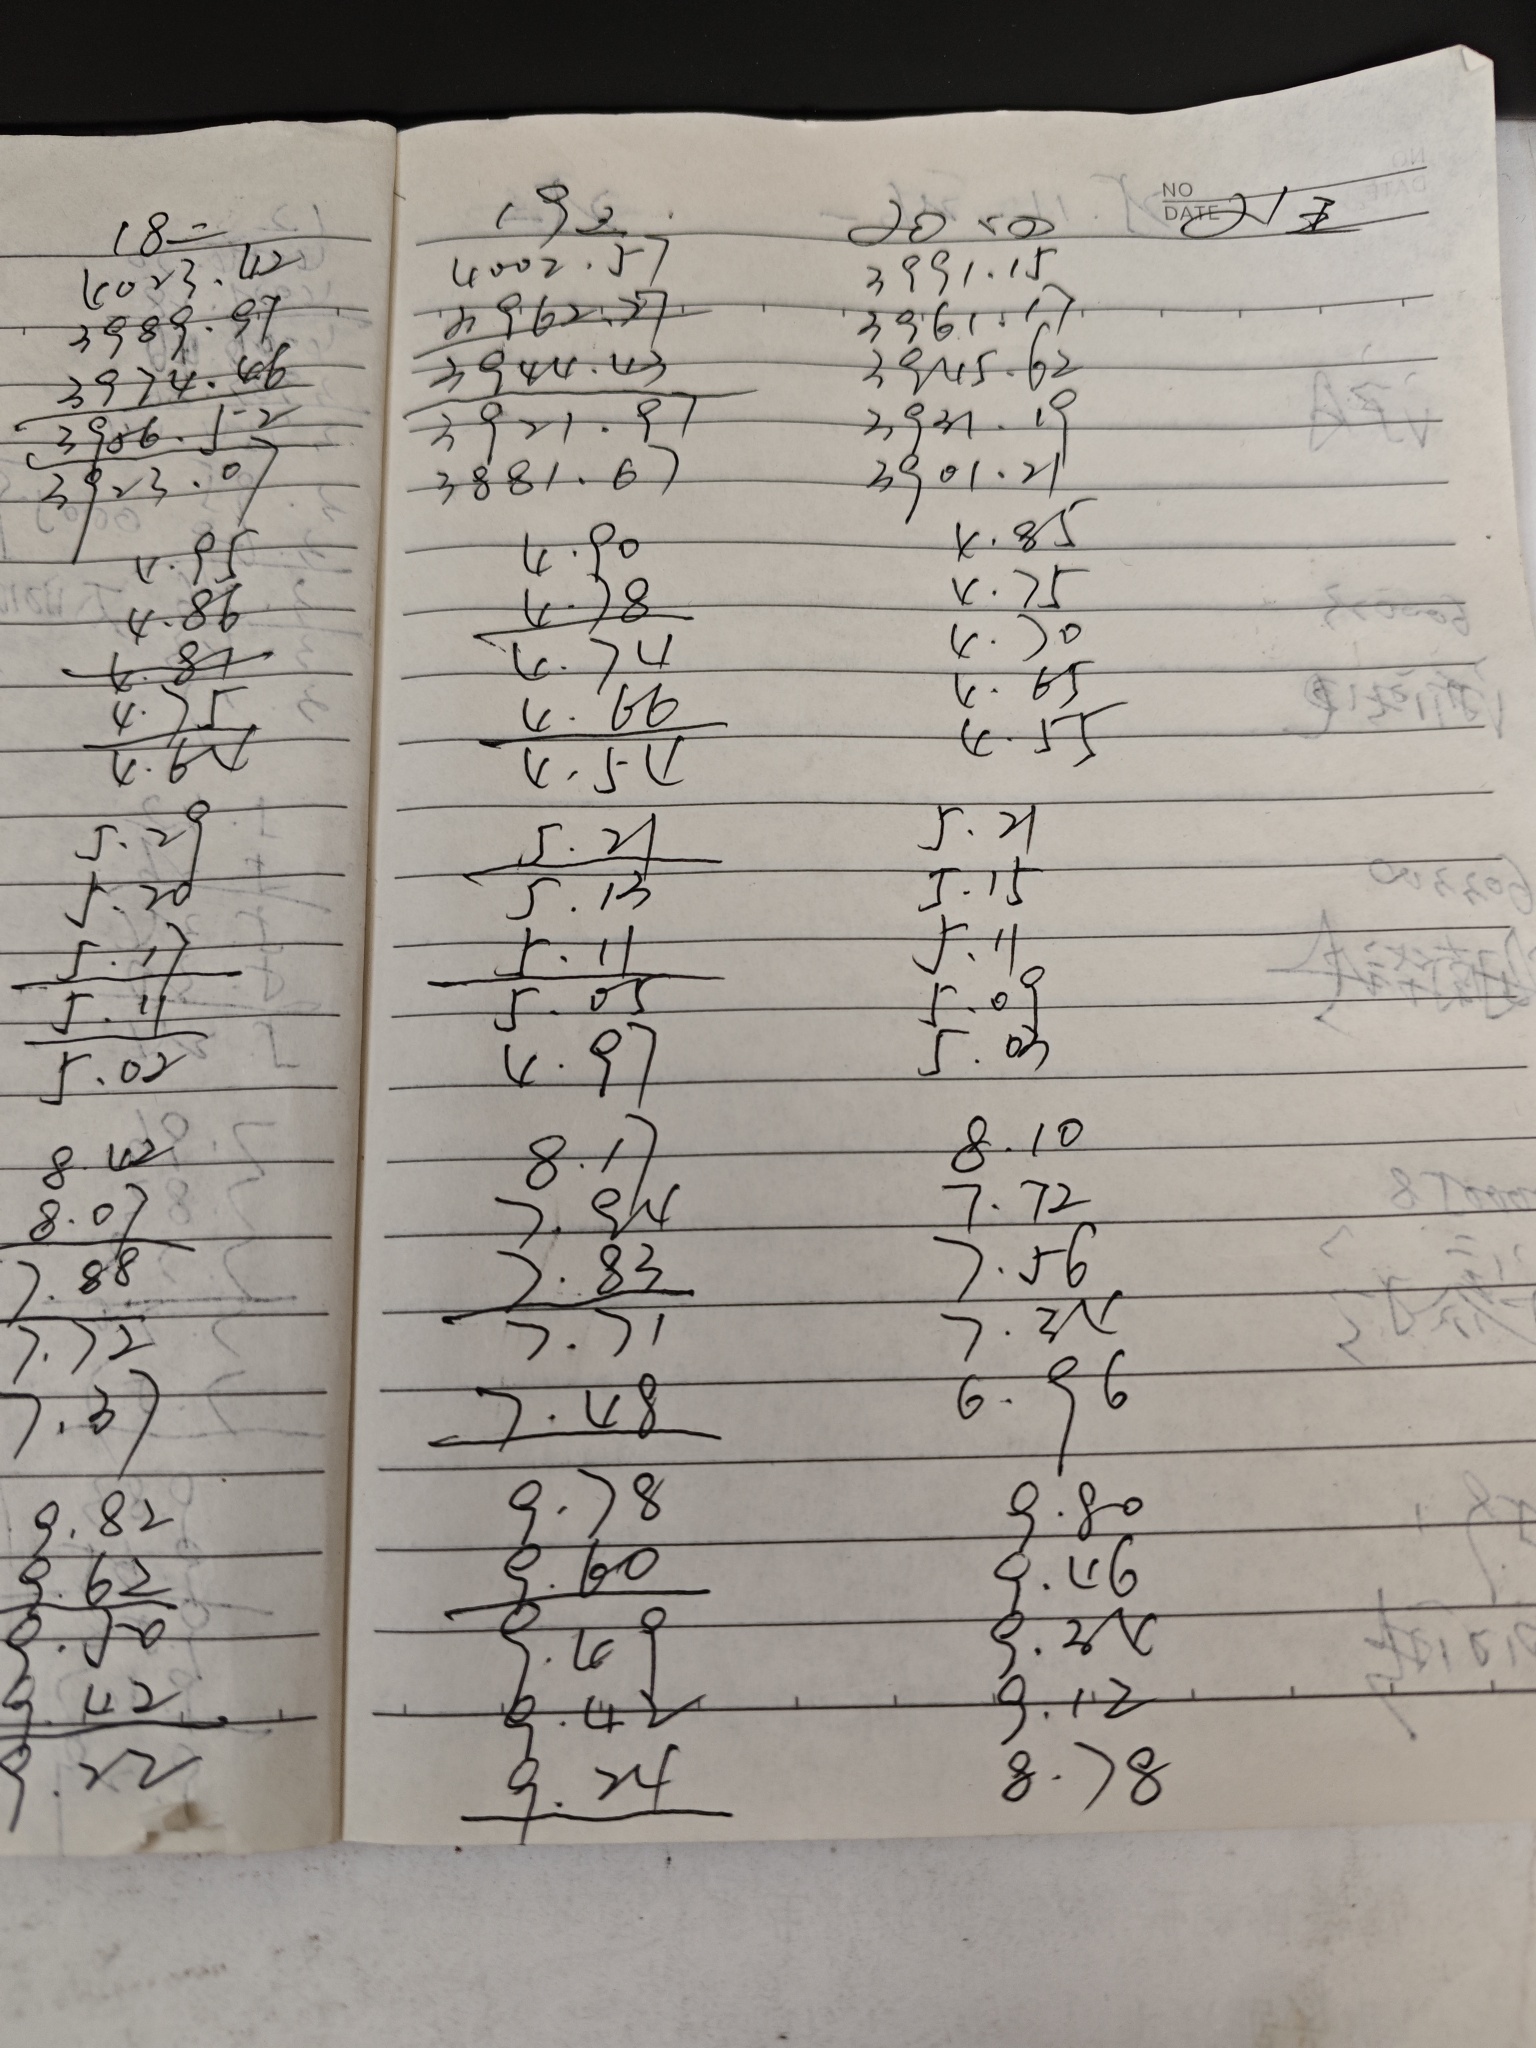 18二
4023.42
3989.97
3974.46
3956.52
3923.07
4.95
4.86
4.81
4.75
4.64
5.29
5.20
5.17
5.11
5.02
8.42
8.07
7.88
7.72
7.37
9.82
9.62
9.50
9.42
9.22
19三
4002.57
3962.27
3944.43
3921.97
3881.67
4.90
4.78
4.74
4.66
4.54
5.21
5.13
5.11
5.05
4.97
8.17
7.94
7.83
7.71
7.48
9.78
9.60
9.49
9.42
9.24
20
3991.15
3961.17
3945.62
3931.19
3901.21
4.85
4.75
4.70
4.65
4.55
5.21
5.15
5.11
5.09
5.03
8.10
7.72
7.56
7.34
6.96
9.80
9.46
9.34
9.12
8.78
NO
DATE
21五